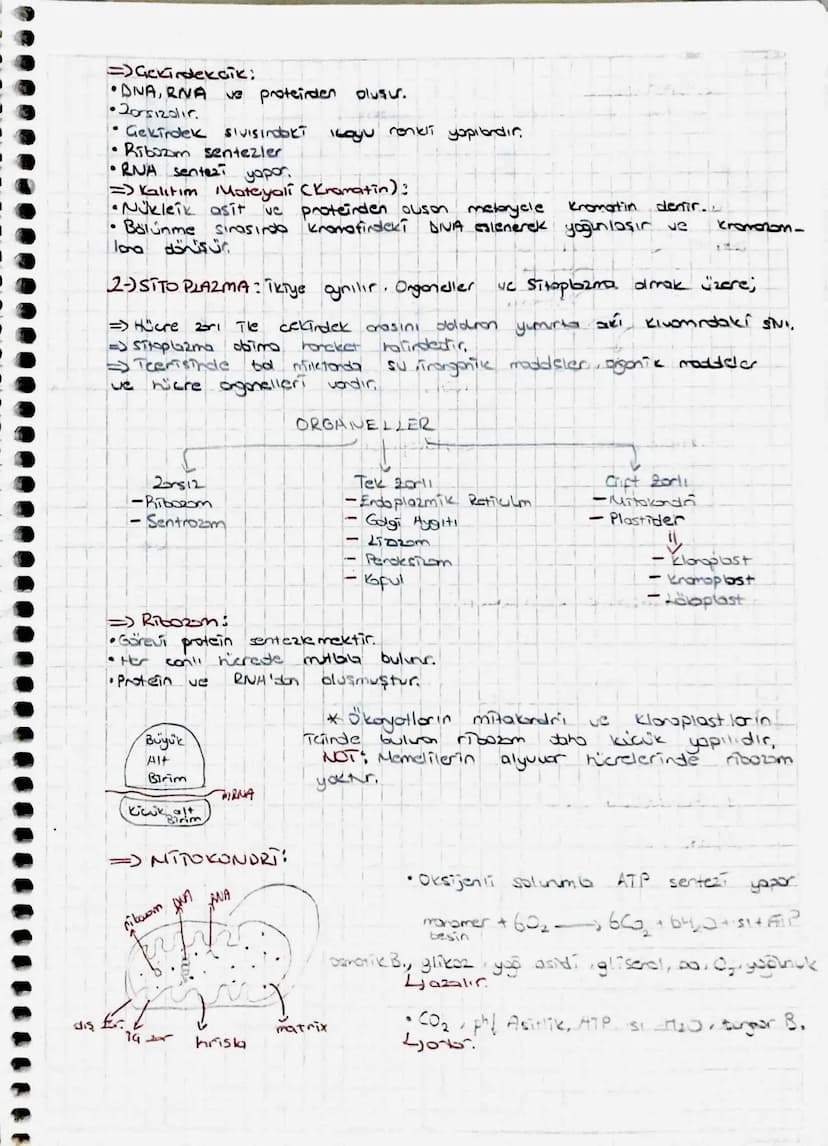 => Çekirdekcik:
• DNA, RNA ve proteinden oluşur.
• Zarsızdır.
• Çekirdek sıvısındaki koyu renkli yapılardır.
• Ribozom sentezler
• RNA sentezi yapar.
=> Kalıtım Materyali (Kromatin):
• Nükleik asit ve proteinden oluşan materyele kromatin denir.
• Bölünme sırasında kromatindeki DNA eşlenerek yoğunlaşır ve kromozom-
lara dönüşür.
2-) SİTOPLAZMA: İkiye ayrılır. Organeller ve Sitoplazma olmak üzere;
=> Hücre zarı ile çekirdek arasını dolduran yumurta akı kıvamındaki sıvı.
=> Sitoplazma daima hareket halindedir.
=> İçerisinde bol miktarda su inorganik maddeler, organik maddeler
ve hücre organelleri vardır.
ORGANELLER
Zarsız
- Ribozom
- Sentrozom
Tek zarlı
- Endoplazmik Retikulm
- Golgi Aygıtı
- Lizozom
- Peroksizom
- Koful
Çift zarlı
- Mitokondri
- Plastider
- Kloroplast
- Kromoplast
- Lökoplast
=> Ribozom:
• Görevi protein sentezlemektir.
• Her canlı hücrede mutlaka bulunur.
• Protein ve RNA'dan oluşmuştur.
Büyük
Alt
Birim
mRNA
Küçük alt
Birim
* Ökaryotların mitokondri ve kloroplastların
içinde bulunan ribozom daha küçük yapılıdır.
NOT: Memelilerin alyuvar hücrelerinde ribozom
yoktur.
=> MİTOKONDRİ:
ribozom
DNA
RNA
dış zar
iç zar
krista
matrix
• Oksijenli solunumla ATP sentezi yapar
monomer + 6O₂ → 6CO₂ + 6H₂O + ısı + ATP
besin
osmotik B., glikoz, yağ asidi, gliserol, aa, O₂, yoğunluk
↳ azalır.
• CO₂, ph/ Asitlik, ATP ısı H₂O, turgor B.
↳ artar.